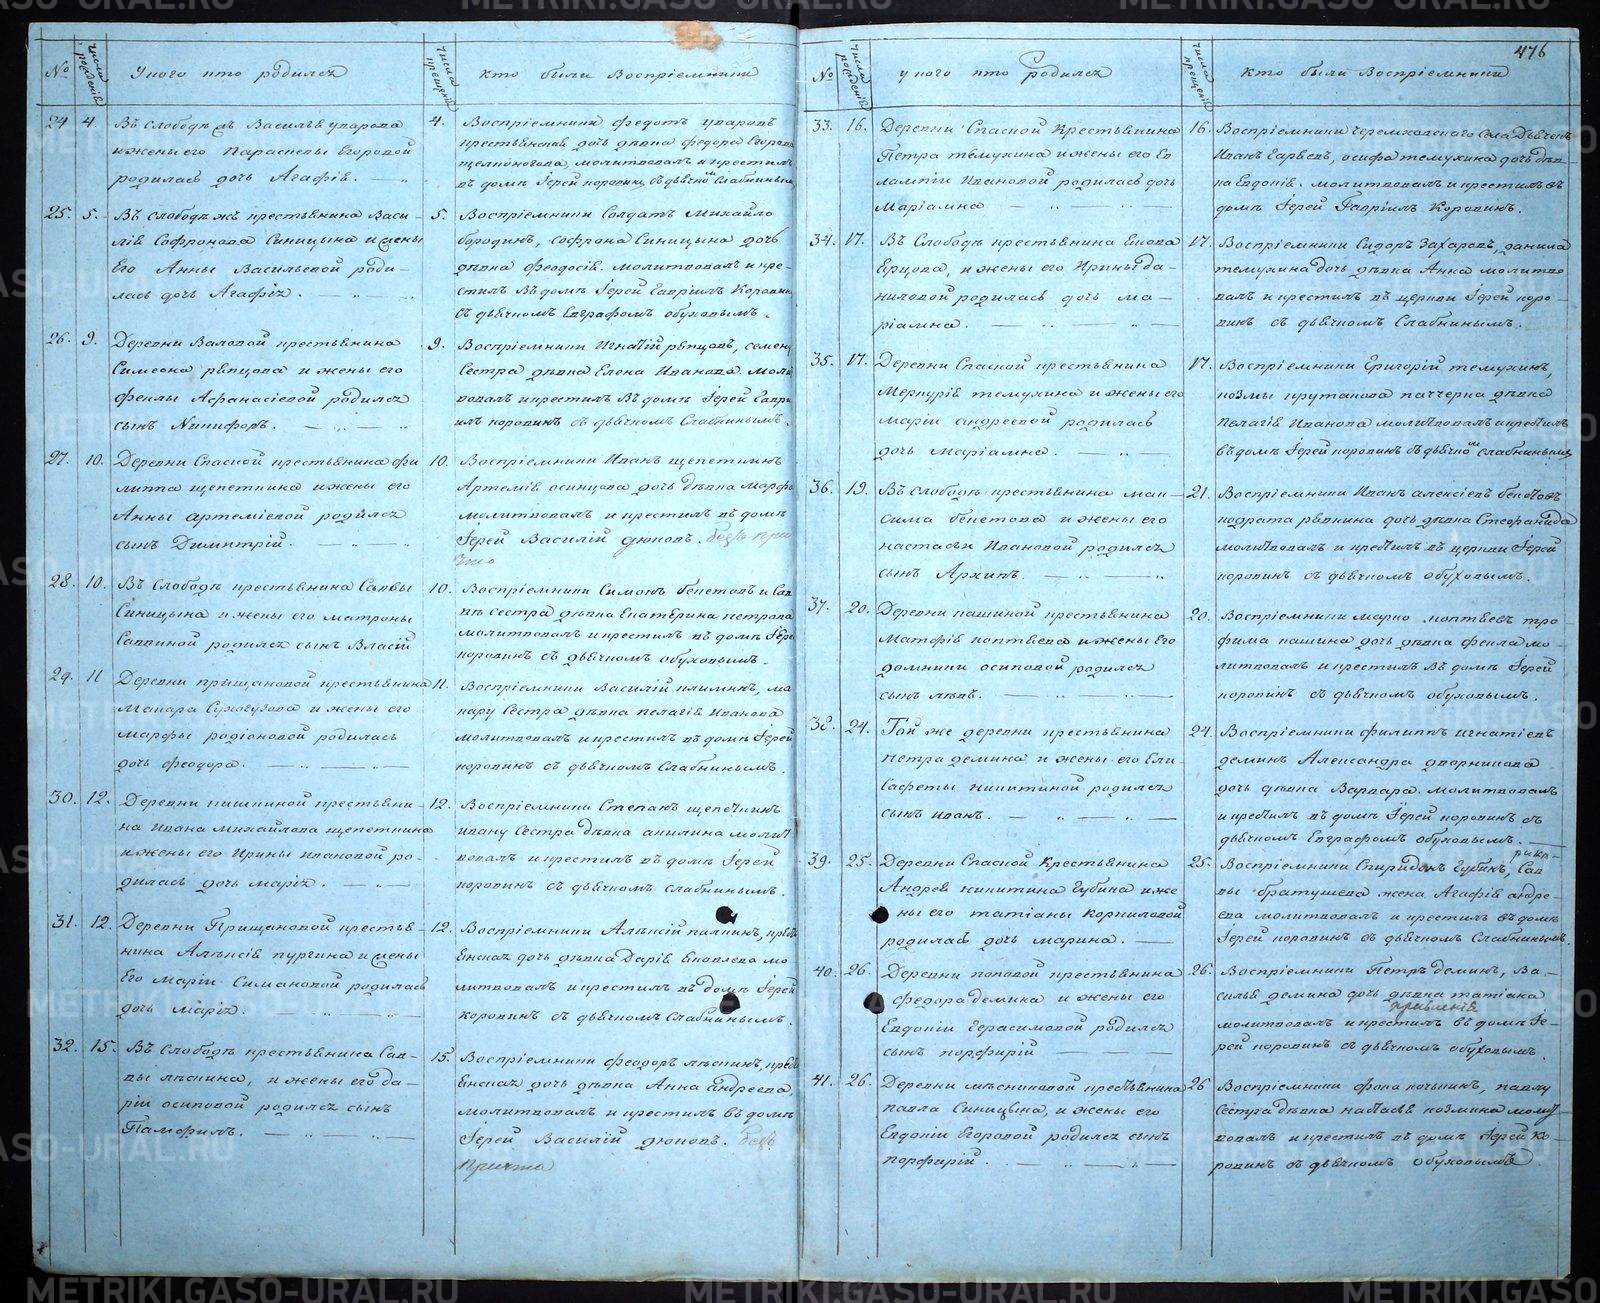 476
№ числа рожденій У кого кто родился числа крещеній кто были Воспріемники
24 4. Въ слободѣ съ Василья уварова
и жены его Парасковьи Егоровой
родилась дочь Агафія.
4. Воспріемники федотъ уваровъ
крестьянская дочь дѣвка федора Егорова
щелконогова, молитвовалъ и крестилъ
въ домѣ Іерей коровинъ съ дьячкомъ Слабнинымъ
25. 5. Въ слободѣ жъ крестьянина Васи-
лія Софронова Синицына и жены
Его Анны Васильевой роди-
лась дочь Агафія.
5. Воспріемники Солдатъ Михайло
бородинъ, софрона Синицына дочь
дѣвка феодосія. молитвовалъ и кре-
стилъ Въ домѣ Іерей Гавріилъ Коровинъ
съ дьячкомъ Евграфомъ обуховымъ.
26. 9. Деревни Валовой крестьянина
Симеона рѣпцова и жены его
феклы Афанасіевой родился
сынъ Никифоръ.
9. Воспріемники Игнатій рѣпцовъ, семену
Сестра дѣвка Елена Иванова. Моли
вовалъ и крестилъ Въ домѣ Іерей Гаврі
илъ коровинъ съ дьячкомъ Слабнинымъ.
27. 10. Деревни Спаской крестьянина фи-
липпа щепеткина и жены его
Анны артеміевой родился
сынъ Димитрій.
10. Воспріемники Иванъ щепеткинъ
Артемія осинцова дочь дѣвка марфа
молитвовалъ и крестилъ въ домѣ
Іерей Василій дюковъ. безъ при
чта
28. 10. Въ слободѣ крестьянина Саввы
Синицына и жены его матроны
Саввиной родился сынъ Власій
10. Воспріемники Симонъ бекетовъ и Сав
вѣ сестра дѣвка Екатерина петрова
молитвовалъ и крестилъ въ домѣ Іерей
коровинъ съ дьячкомъ обуховымъ.
29. 11 Деревни прищановой крестьянина
Макара Сухогузова и жены его
марфы родіоновой родилась
дочь феодора.
11. Воспріемники Василій климинъ, ма
кару Сестра дѣвка пелагія Иванова
молитвовалъ и крестилъ въ домѣ Іерей
коровинъ съ дьячкомъ Слабнинымъ.
30. 12. Деревни кишкиной крестьяни-
на Ивана михайлова щепеткина
и жены его Ирины ивановой ро-
дилась дочь марія.
12. Воспріемники Степанъ щепеткинъ
ивану Сестра дѣвка акилина молит
вовалъ и крестилъ въ домѣ Іерей
коровинъ съ дьячкомъ слабнинымъ.
31. 12. Деревни Прищановой крестья-
нина Алѣксія пургина и жены
Его Маріи Симановой родилась
дочь марія.
12. Воспріемники Алѣксій палкинъ, крестья
янская дочь дѣвка Дарія яковлева мо
литвовалъ и крестилъ въ домѣ Іерей
коровинъ съ дьячкомъ Слабнинымъ.
32. 15. Въ слободѣ крестьянина Сав-
вы лѣскина, и жены его да-
ріи осиповой родился сынъ
Памфилъ.
15. Воспріемники феодоръ лѣскинъ, кресть
янская дочь дѣвка Анна андреева,
молитвовалъ и крестилъ въ домѣ
Іерей Василій дюковъ. безъ
причта
№ числа рожденій у кого кто родился числа крещеній кто были Воспріемники
33. 16. Деревни Спаской Крестьянина
Петра темухина и жены его Ев
лампіи Ивановой родилась дочь
Маріамна
16. Воспріемники черемховского села Дьячекъ
Иванъ Гаряевъ, осифа темухина дочь дѣв-
ка Евдокія. молитвовалъ и крестилъ въ
домѣ Іерей Гавріилъ Коровинъ.
34. 17. Въ Слободѣ крестьянина якова
Ерцова, и жены его Ирины да-
ниловой родилась дочь ма-
ріамна.
17. Воспріемники Сидоръ Захаровъ, данила
темухина дочь дѣвка Анна молитво
валъ и крестилъ въ церкви Іерей коро-
винъ съ дьячкомъ Слабнинымъ.
35. 17. Деревни Спаской крестьянина
Меркурія темухина и жены его
маріи андреевой родилась
дочь Маріамна.
17. Воспріемники Григорій темухинъ,
козмы крутакова патчерка дѣвка
Пелагія Иванова молитвовалъ и крестилъ
въ домѣ Іерей коровинъ съ дьячкомъ слабнинымъ
36. 19. Въ слободѣ крестьянина мак-
сима бекетова и жены его
настасьи Ивановой родился
сынъ Архипъ.
21. Воспріемники Иванъ алексіевъ бекетовъ
кодрата рявкина дочь дѣвка Стефанида
молитвовалъ и крестилъ въ церкви Іерей
коровинъ съ дьячкомъ обуховымъ.
37. 20. Деревни пашиной крестьянина
Матфія коптяева и жены Его
домники осиповой родился
сынъ левъ.
20. Воспріемники марко коптяевъ тро
фима пашина дочь дѣвка фекла мо-
литвовалъ и крестилъ Въ домѣ Іерей
коровинъ съ дьячкомъ обуховымъ.
38. 24. Той же деревни крестьянина
петра демина и жены его Ели-
сафеты никитиной родился
сынъ иванъ.
24. Воспріемники филиппъ игнатіевъ
деминъ Александра дворникова
дочь дѣвка Варвара. молитвовалъ
и крестилъ въ домѣ Іерей коровинъ съ
дьячкомъ Евграфомъ обуховымъ.
39. 25. Деревни Спаской Крестьянина
Андрея никитина Губина и же
ны его татіаны Корниловой
родилась дочь марина.
25. Воспріемники Спиридонъ Губинъ, Сав
вы братушева жена Агафія андре-
ева молитвовалъ и крестилъ въ домѣ
Іерей коровинъ съ дьячкомъ Слабнинымъ.
40. 26. Деревни поповой крестьянина
федора демина и жены его
Евдокіи Герасимовой родился
сынъ порфирій
26. Воспріемники Петръ деминъ, Ва-
силья демина дочь дѣвка татіана
молитвовалъ и крестилъ въ домѣ Іе-
рей коровинъ съ дьячкомъ обуховымъ.
41. 26. Деревни мясниковой крестьянина
павла Синицына, и жены его
Евдокіи Егоровой родился сынъ
порфирій.
26 Воспріемники фока кочькинъ, павлу
Сестра дѣвка настасья козмина молит
вовалъ и крестилъ въ домѣ Іерей Ко-
ровинъ съ дьячкомъ обуховымъ
METRIKI.GASO-URAL.RU